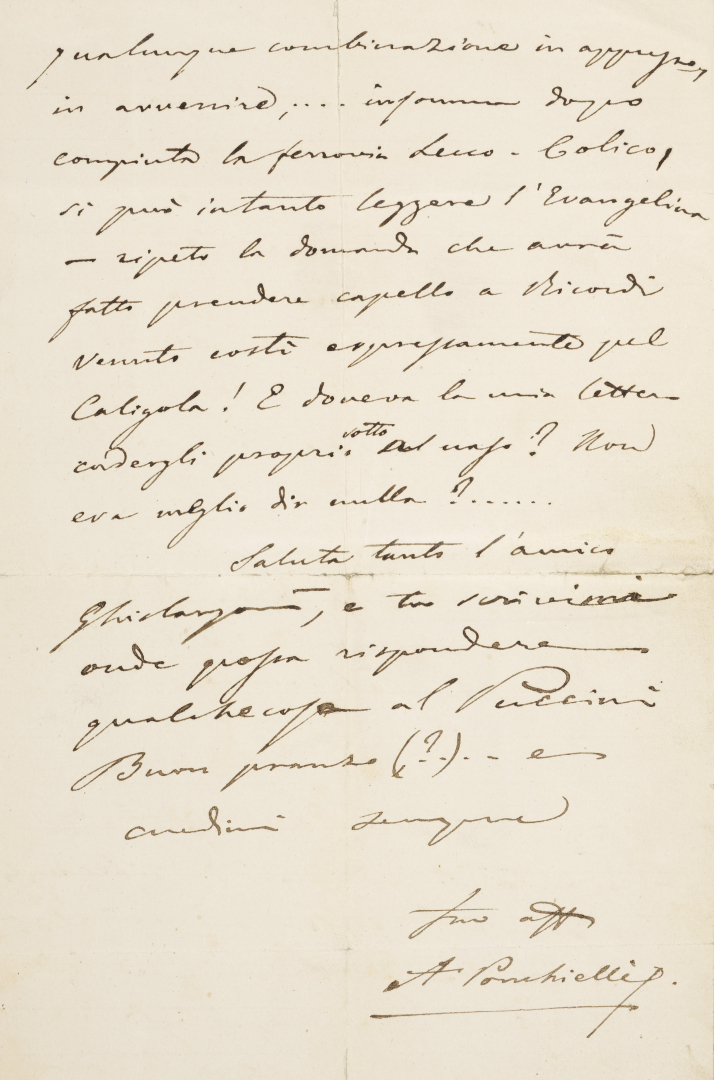 qualunque combinazione in appresso,
in avvenire, .... insomma dopo
compiuta la ferrovia Lecco - Colico,
si può intanto leggere l'Evangelina
— ripeto la domanda che avrà
fatto prendere capello a Ricordi
venuto costì espressamente pel
Caligola! E doveva la mia letter
cadergli proprio sotto al naso? Non
era meglio dir nulla?......
Saluta tanto l'amico
Ghislanzoni, e tu scrivimi
onde possa rispondere
qualchecosa al Puccini
Buon pranzo (?)... e
credimi sempre
Tuo aff
A Ponchielli.